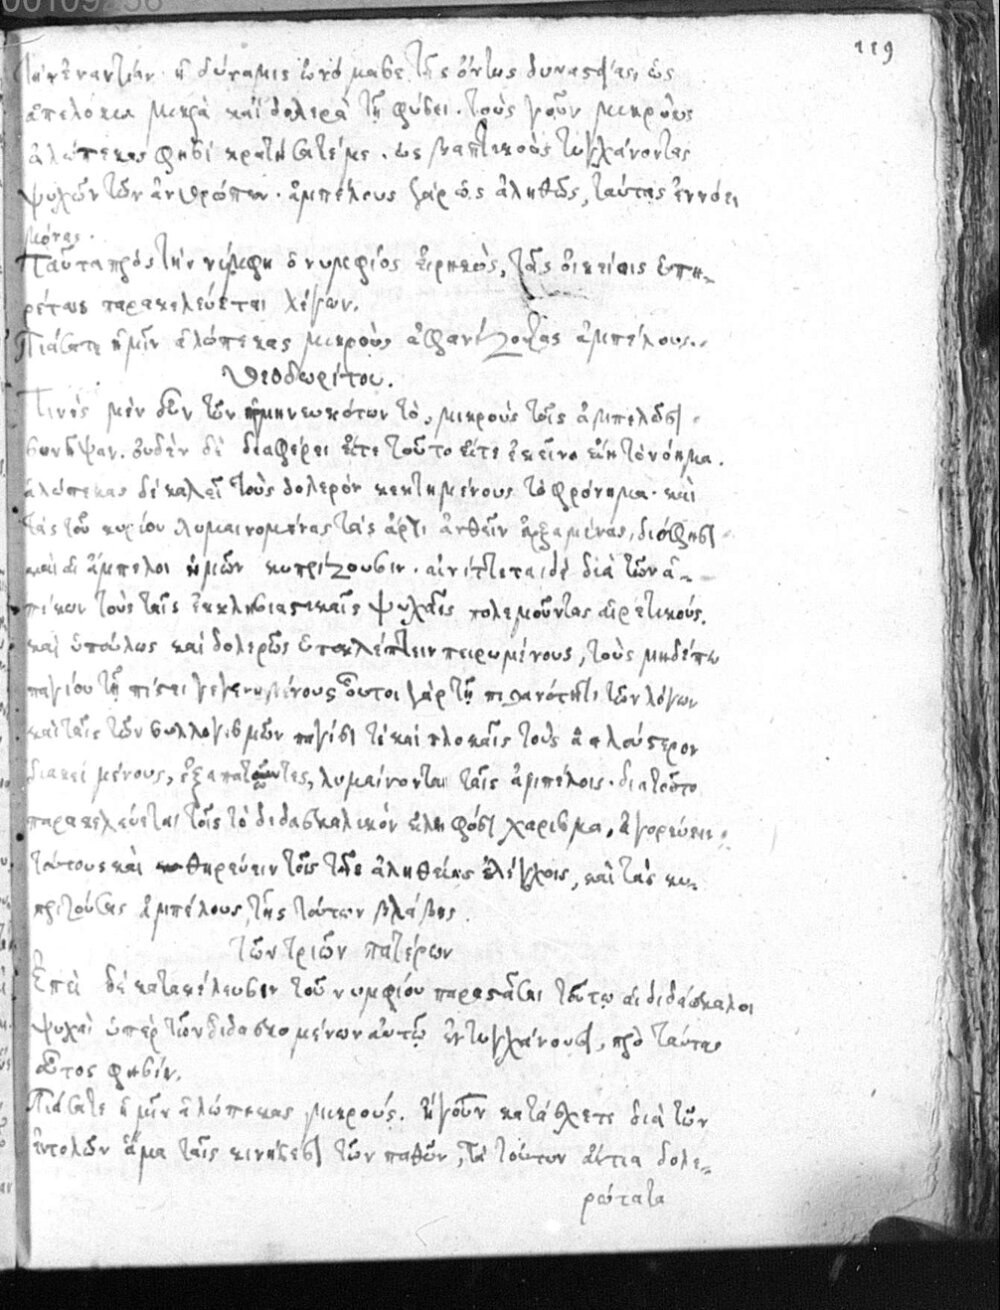 119
τὴν ἐναντίαν. ἡ δύναμις ὠνόμασε τῆς ὄντως δυναστείας, ὡς
μικρὰ καὶ δολερὰ τῇ φύσει. τοὺς γοῦν μικροὺς
ἀλώπεκας φησὶ κρατήσατέ με. ὡς τυγχάνοντας
ψυχῶν τῶν ἀνθρώπων. ἀμπέλους γὰρ ὡς ἀληθῶς, ταύτας ἐννόει
μόνας.
Ταῦτα πρὸς τὴν νύμφην ὁ νυμφίος εἰρηκὼς, τοῖς οἰκείοις ὑπη-
ρέταις παρακελεύεται λέγων.
Πιάσατε ἡμῖν ἀλώπεκας μικροὺς ἀφανίζοντας ἀμπέλους.
Θεοδωρίτου.
Τινὲς μὲν οὖν τῶν ἑρμηνευκότων τὸ, μικροὺς τοῖς ἀμπελῶσι
συνῆψαν. οὐδὲν δὲ διαφέρει εἴτε τοῦτο εἴτε ἐκεῖνο εἴη τὸ νόημα.
ἀλώπεκας δὲ καλεῖ τοὺς δολερὸν κεκτημένους τὸ φρόνημα. καὶ
τὰς τοῦ κυρίου λυμαινομένας τὰς ἄρτι ἀνθεῖν ἀρξαμένας, διό φησι
καὶ αἱ ἄμπελοι ἡμῶν κυπρίζουσιν. αἰνίττεται δὲ διὰ τῶν ἀ-
πέκων τοὺς ταῖς ἐκκλησιαστικαῖς ψυχαῖς πολεμοῦντας αἱρετικούς.
καὶ ὑπούλως καὶ δολερῶς ὑποκλέπτειν πειρωμένους, τοὺς μηδέπω
παγίους τῇ πίστει γεγενημένους οὗτοι γὰρ τῇ πιθανότητι τῶν λόγων
καὶ ταῖς τῶν συλλογισμῶν παγίσι τὲ καὶ πλοκαῖς τοὺς ἁπλούστερον
διακειμένους, ἐξαπατῶντες, λυμαίνονται ταῖς ἀμπέλοις. διατοῦτο
παρακελεύεται τοῖς τὸ διδασκαλικὸν εἰληφόσι χάρισμα, ἀγορεύειν
τούτους καὶ θηρεύειν τοῖς τῆς ἀληθείας ἐλέγχοις, καὶ τὰς κυ-
πριζούσας ἀμπέλους, τῆς τούτων βλάβης.
τῶν τριῶν πατέρων
Ἐπεὶ δὲ κατακέλευσιν τοῦ νυμφίου παραστᾶσαι τούτῳ αἱ διδάσκαλοι
ψυχαὶ ὑπὲρ τῶν διδασκομένων αὐτῷ ἐντυγχάνουσι, πρὸ ταύτας
οὗτος φησίν.
Πιάσατε ἡμῖν ἀλώπεκας μικρούς. ἤγουν κατάσχετε διὰ τῶν
ἐντολῶν ἅμα ταῖς κινήσεσι τῶν παθῶν, τὰ τούτων αἴτια δολε-
ρώτατα